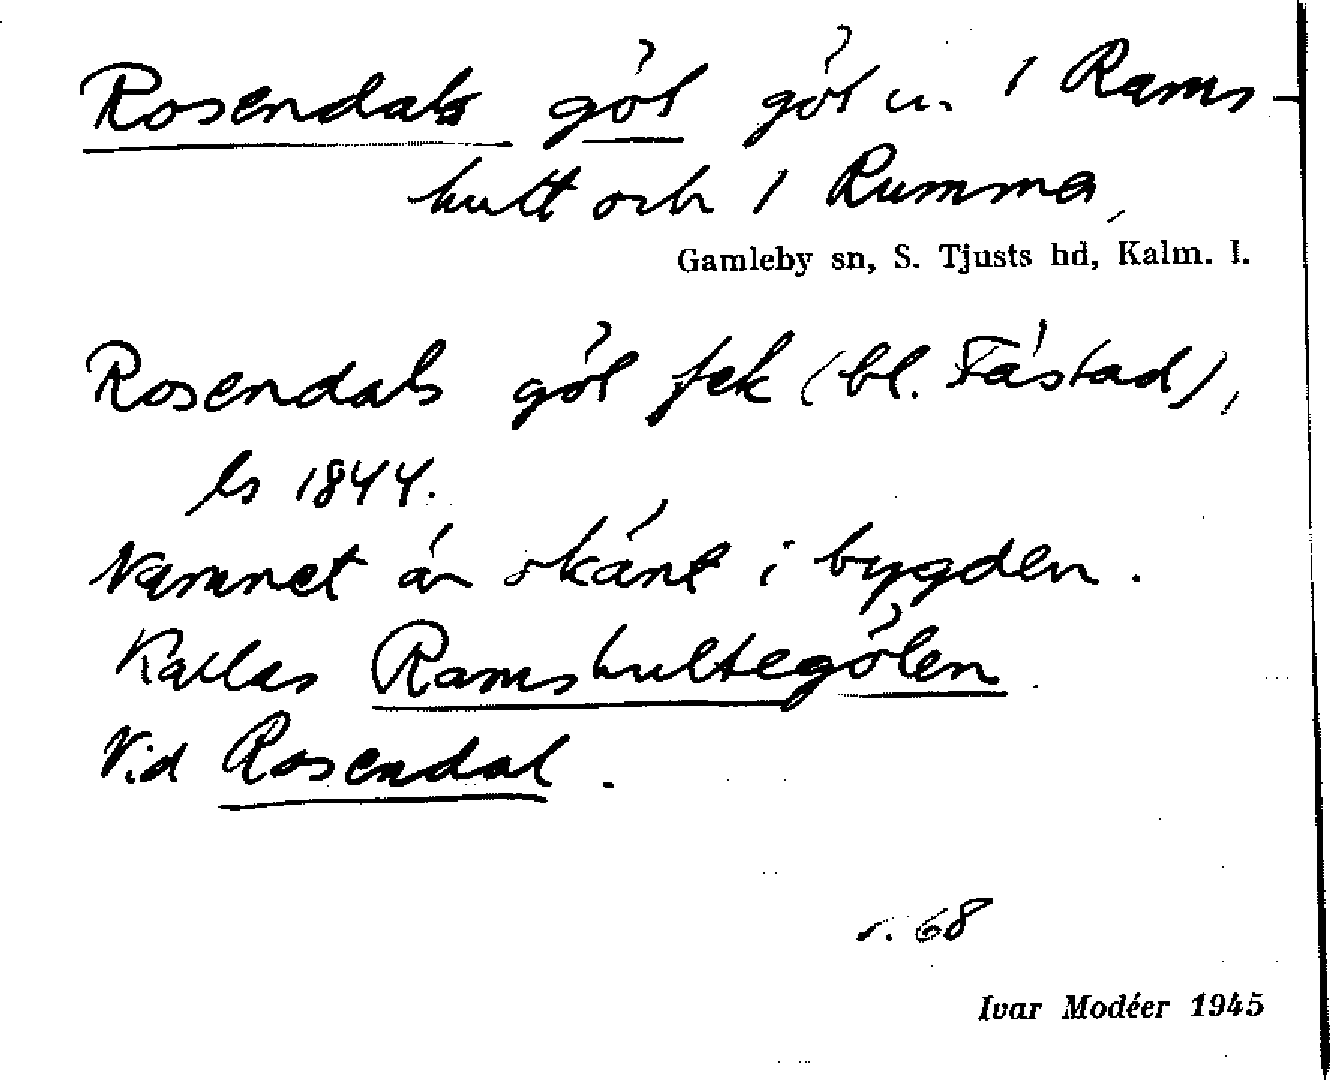 Rosendals göl göl u. 1 Rams-
hult och 1 Rumma,
Gamleby sn, S. Tjusts hd, Kalm. l.
Rosendals göl fek (bl. Fåstad),
ls 1844.
Namnet är okänt i bygden.
Kallas Ramshultegölen.
Vid Rosendal.
s. 68
Ivar Modéer 1945